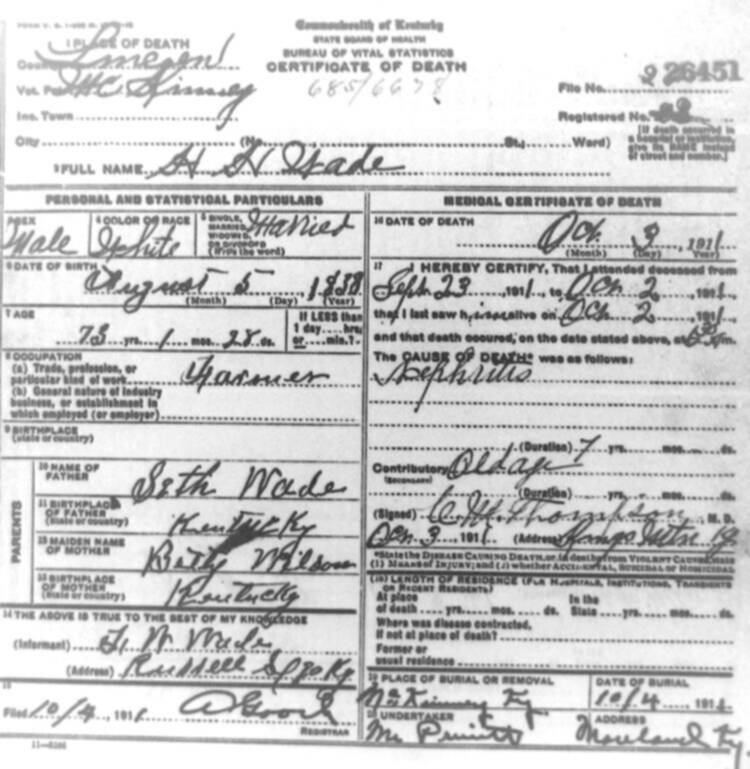 Commonwealth of Kentucky
STATE BOARD OF HEALTH
BUREAU OF VITAL STATISTICS
CERTIFICATE OF DEATH
1 PLACE OF DEATH
Vot. Pct. McKinney
File No. 26451
Inc. Town
Registered No.
City (No. St.; Ward)
[If death occurred in a hospital or institution, give its NAME instead of street and number.]
2 FULL NAME H H Wade
PERSONAL AND STATISTICAL PARTICULARS
3 SEX Male
4 COLOR OR RACE White
5 SINGLE, MARRIED, WIDOWED, OR DIVORCED (Write the word) Married
6 DATE OF BIRTH August 5, 1838
(Month) (Day) (Year)
7 AGE 73 yrs. 1 mos. 28 ds.
If LESS than 1 day....hrs. or....min.?
8 OCCUPATION
(a) Trade, profession, or particular kind of work Farmer
(b) General nature of industry, business, or establishment in which employed (or employer)
9 BIRTHPLACE
(State or country)
PARENTS
10 NAME OF FATHER Seth Wade
11 BIRTHPLACE OF FATHER (State or country) Kentucky
12 MAIDEN NAME OF MOTHER Betty Wilson
13 BIRTHPLACE OF MOTHER (State or country) Kentucky
14 THE ABOVE IS TRUE TO THE BEST OF MY KNOWLEDGE
(Informant) W Wade
(Address) Russell Spgs Ky
15
Filed 10/4, 1911
REGISTRAR
MEDICAL CERTIFICATE OF DEATH
16 DATE OF DEATH Oct. 3, 1911
(Month) (Day) (Year)
17 I HEREBY CERTIFY, That I attended deceased from
Sept 23 1911, to Oct 2, 1911,
that I last saw him alive on Oct 2, 1911,
and that death occured, on the date stated above, at m.
The CAUSE OF DEATH* was as follows:
Nephritis
(Duration) 7 yrs. mos. ds.
Contributory Old age
(SECONDARY)
(Duration) yrs. mos. ds.
(Signed) C. M. Thompson, M. D.
Oct. 3, 1911 (Address) Kings Mtn Ky
*State the DISEASE CAUSING DEATH, or, in deaths from VIOLENT CAUSES, state (1) MEANS OF INJURY; and (2) whether ACCIDENTAL, SUICIDAL or HOMICIDAL
(18) LENGTH OF RESIDENCE (FOR HOSPITALS, INSTITUTIONS, TRANSIENTS OR RECENT RESIDENTS)
At place of death yrs. mos. ds. In the State yrs. mos. ds.
Where was disease contracted, if not at place of death?
Former or usual residence
19 PLACE OF BURIAL OR REMOVAL McKinney Ky
DATE OF BURIAL 10/4, 1911
20 UNDERTAKER
ADDRESS Moreland Ky.